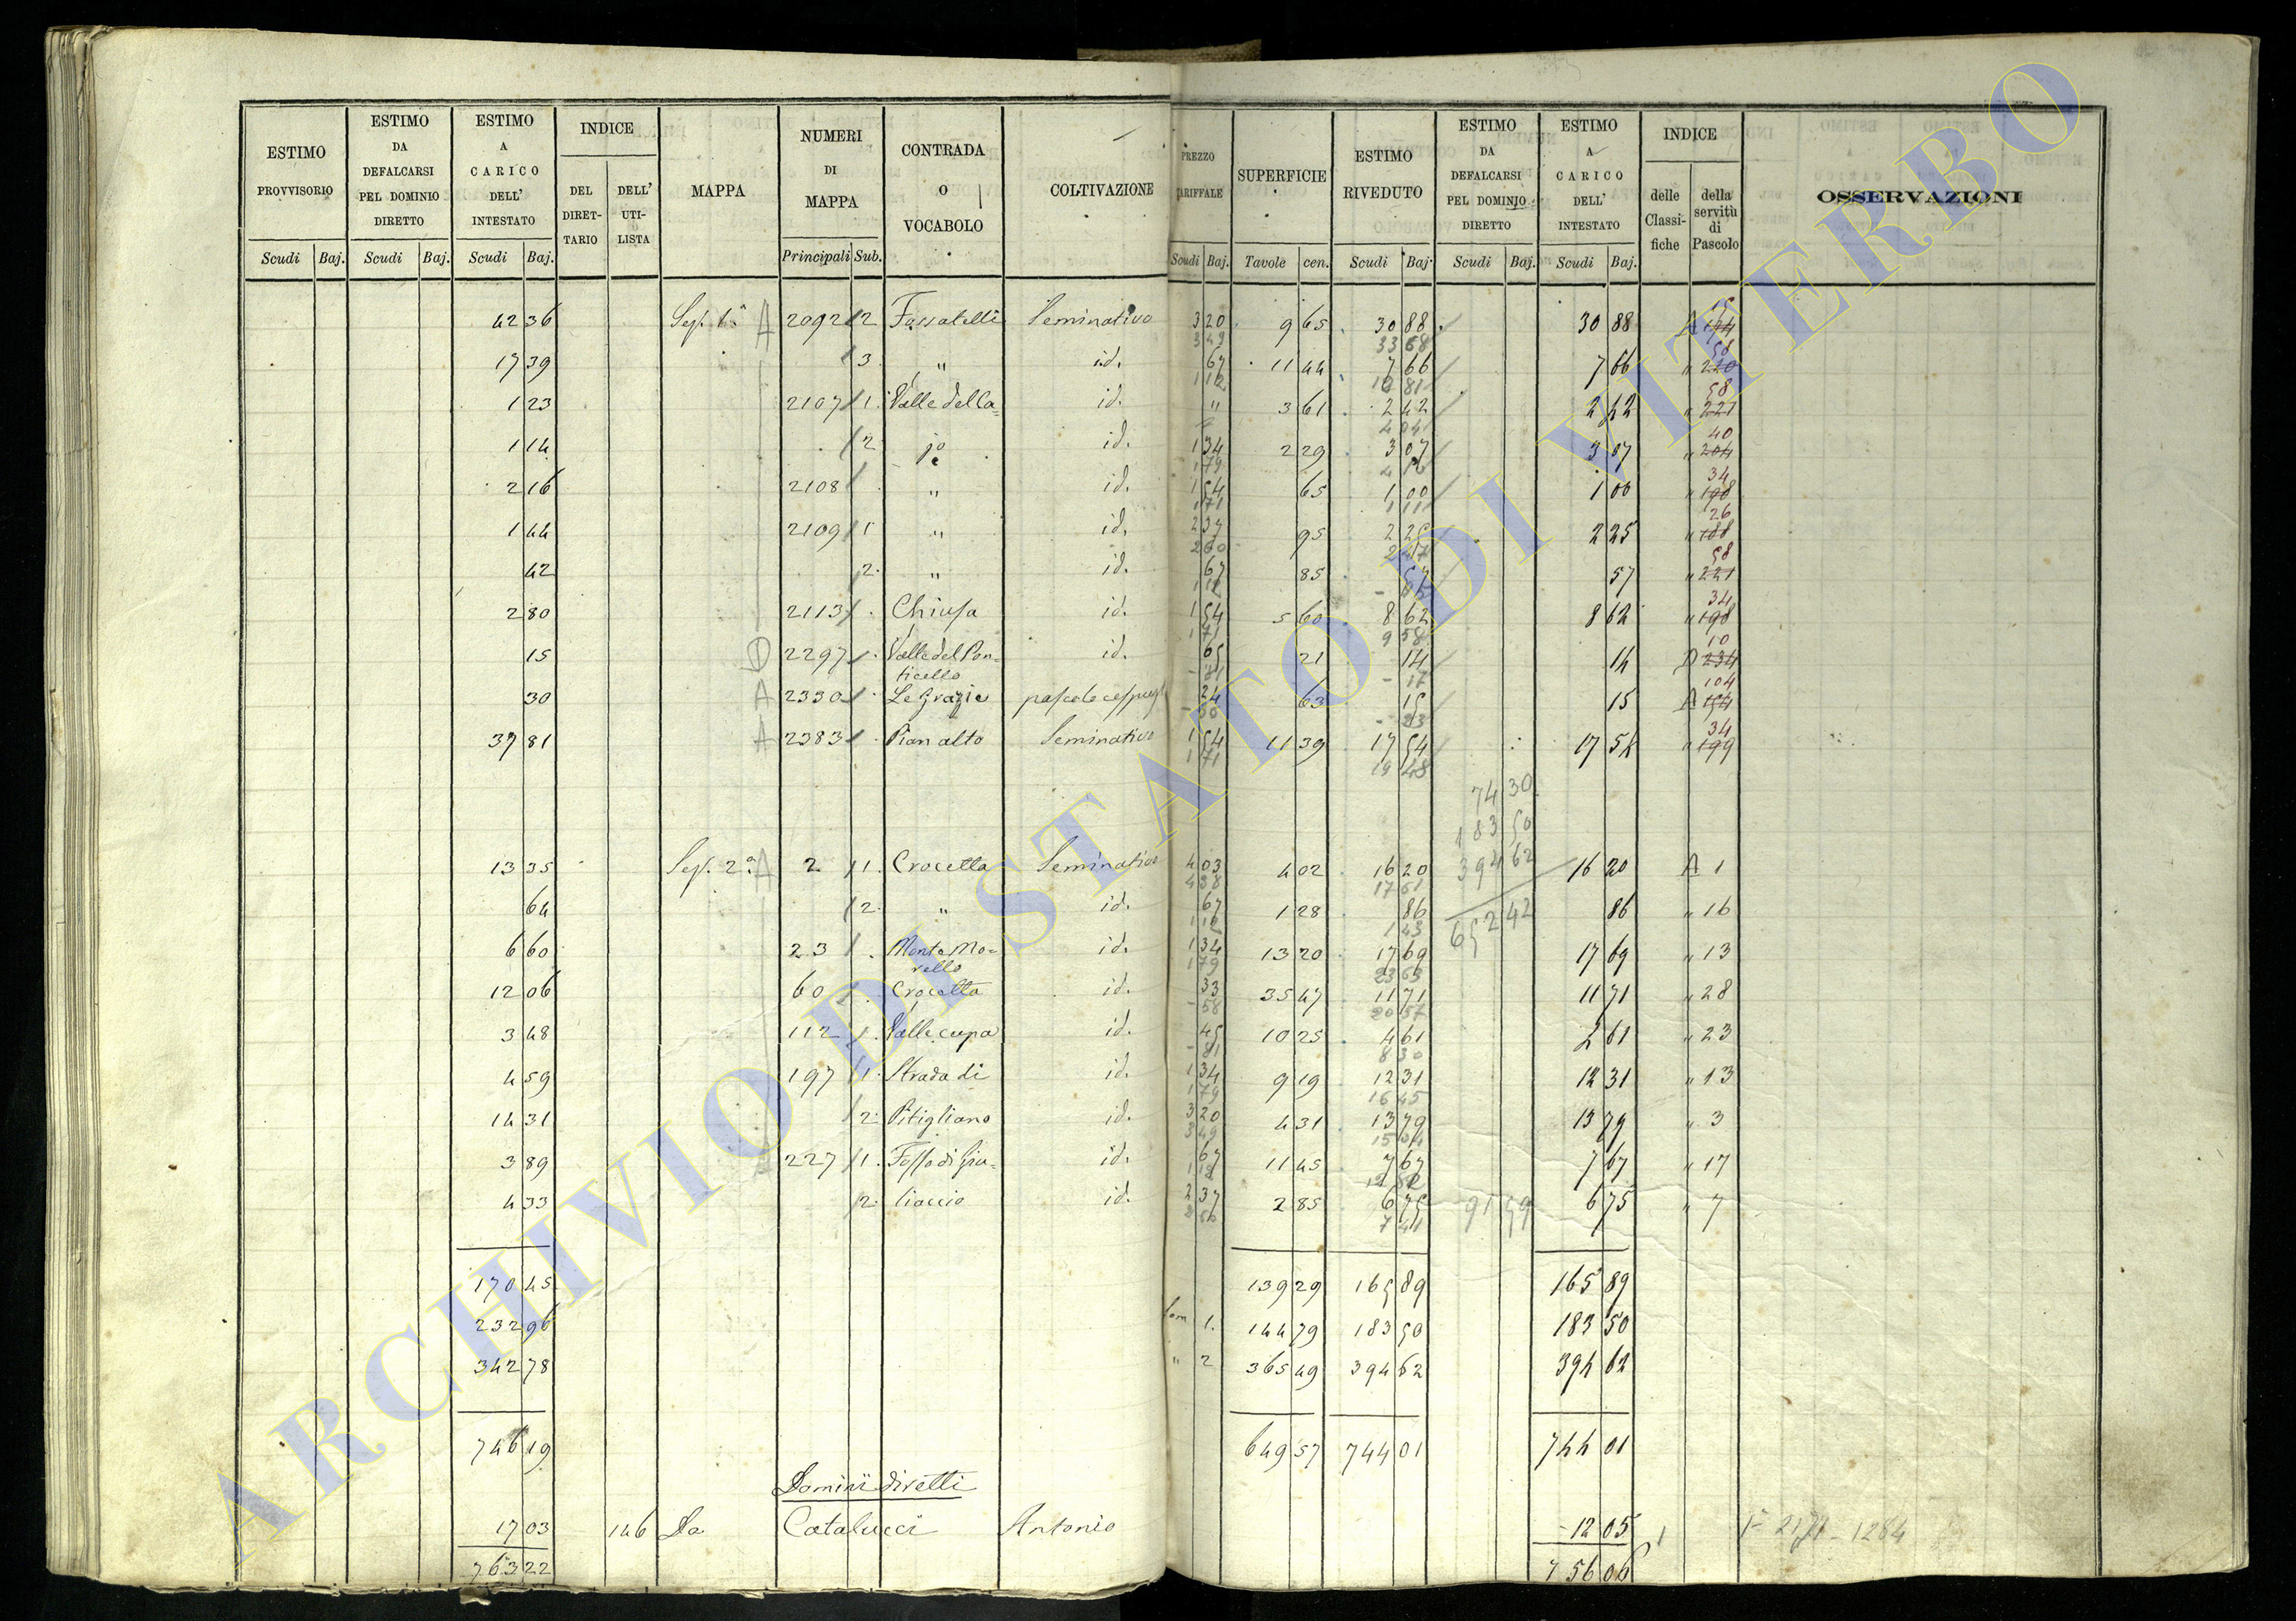 ESTIMO PROVVISORIO | ESTIMO DA DEFALCARSI PEL DOMINIO DIRETTO | ESTIMO A CARICO DELL' INTESTATO | INDICE | MAPPA | NUMERI DI MAPPA | CONTRADA O VOCABOLO | COLTIVAZIONE | PREZZO TARIFFALE | SUPERFICIE | ESTIMO RIVEDUTO | ESTIMO DA DEFALCARSI PEL DOMINIO DIRETTO | ESTIMO A CARICO DELL' INTESTATO | INDICE | OSSERVAZIONI
DEL DIRETTARIO | DELL' UTILISTA | delle Classifiche | della servitù di Pascolo
Scudi Baj. | Scudi Baj. | Scudi Baj. | Principali Sub. | Scudi Baj. | Tavole cen. | Scudi Baj. | Scudi Baj. | Scudi Baj.
42 36 | Sez. 1ª A | 2092 2 | Fossatelli | Seminativo | 3 20 | 9 65 | 30 88 | 30 88 | A 144 15
3 49 | 33 68
17 39 | 3 | " | id. | 67 | 11 44 | 7 66 | 7 66 | " 220 58
1 12 | 12 81
1 23 | 2107 1 | Valle del Ca= | id. | " | 3 61 | 2 42 | 2 42 | " 221 58
4 04
1 14 | 2 | id. | 1 34 | 2 29 | 3 07 | 3 07 | " 204 40
1 79 | 4 10
2 16 | 2108 | " | id. | 1 54 | 65 | 1 00 | 1 00 | " 198 34
1 71 | 1 11
1 44 | 2109 1 | " | id. | 2 37 | 95 | 2 25 | 2 25 | " 188 26
2 60 | 2 47
42 | 2 | " | id. | 67 | 85 | 57 | 57 | " 221 58
1 12 | 95
2 80 | 2113 | Chiusa | id. | 1 54 | 5 60 | 8 62 | 8 62 | " 198 34
1 71 | 9 58
15 | D | 2297 | Valle del Pon= | id. | 65 | 21 | 14 | 14 | D 234 10
ticello | 81 | 17
30 | A | 2330 | Le Grazie | pascolo cespugl | 24 | 63 | 15 | 15 | A 154 104
23
37 81 | A | 2383 | Pian alto | Seminativo | 1 54 | 11 39 | 17 54 | 17 54 | " 199 34
1 71 | 19 48
74 30
183 50
13 35 | Sez. 2ª A | 2 1 | Crocetta | Seminativo | 4 03 | 4 02 | 16 20 | 394 62 | 16 20 | A 1
4 38 | 17 61
64 | 2 | " | id. | 67 | 1 28 | 86 | 652 42 | 86 | " 16
1 12 | 1 43
6 60 | 23 | Monte Mo= | id. | 1 34 | 13 20 | 17 69 | 17 69 | " 13
rello | 1 79 | 23 63
12 06 | 60 | Crocetta | id. | 33 | 35 47 | 11 71 | 11 71 | " 28
58 | 20 57
3 48 | 112 | Valle cupa | id. | 45 | 10 25 | 4 61 | 4 61 | " 23
81 | 8 30
4 59 | 197 1 | Strada di | id. | 1 34 | 9 19 | 12 31 | 12 31 | " 13
1 79 | 16 45
14 31 | 2 | Pitigliano | id. | 3 20 | 4 31 | 13 79 | 13 79 | " 3
3 49 | 15 04
3 89 | 227 1 | Fosso di Giu= | id. | 67 | 11 45 | 7 67 | 7 67 | " 17
1 12 | 12 82
4 33 | 2 | liaccio | id. | 2 37 | 2 85 | 6 75 | 91 59 | 6 75 | " 7
2 60 | 7 41
170 45 | 139 29 | 165 89 | 165 89
232 96 | 1. | 144 79 | 183 50 | 183 50
342 78 | " 2 | 365 49 | 394 62 | 394 62
746 19 | 649 57 | 744 01 | 744 01
Dominii diretti
17 03 | 146 | Da Catalucci Antonio | 12 05
763 22 | 756 06
ARCHIVIO DI STATO DI VITERBO